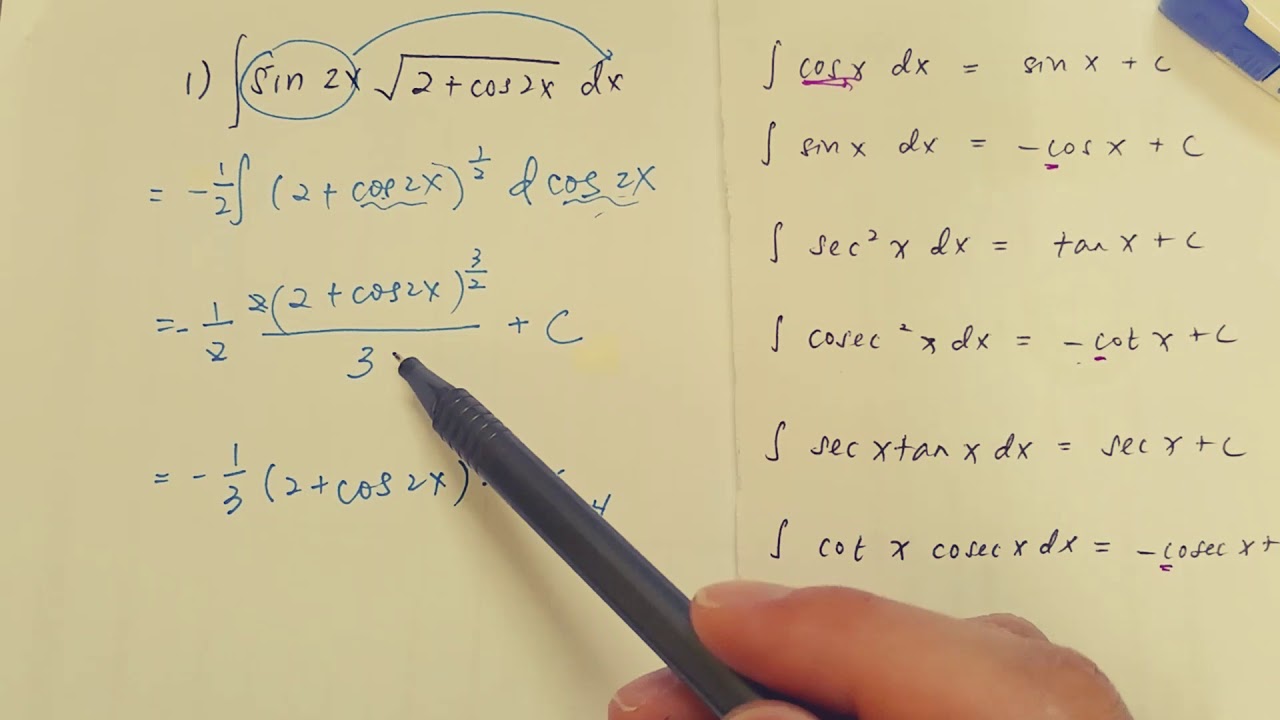 1) ∫ sin 2x √(2 + cos 2x) dx
= -1/2 ∫ (2 + cos 2x)^(1/2) d cos 2x
= - 1/2 2(2 + cos 2x)^(3/2) / 3 + C
= - 1/3 (2 + cos 2x)
∫ cos x dx = sin x + C
∫ sin x dx = - cos x + C
∫ sec² x dx = tan x + C
∫ cosec² x dx = - cot x + C
∫ sec x tan x dx = sec x + C
∫ cot x cosec x dx = - cosec x +